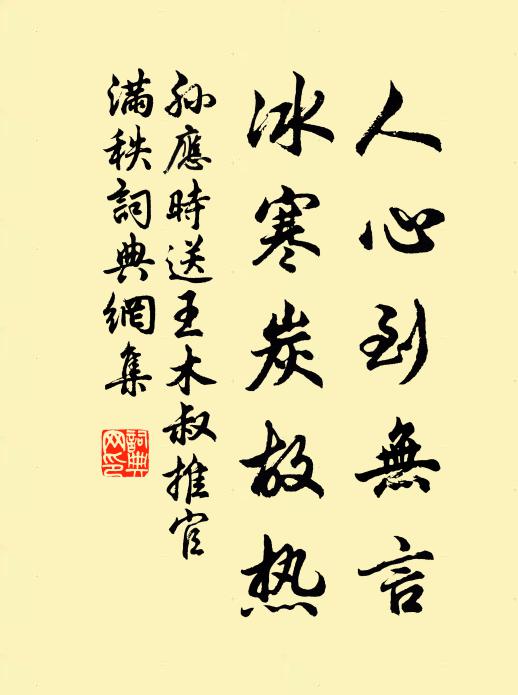 人心到無言
冰寒炭故热
孙應時送王木叔推官
滿秩詞典網集
詞典網印